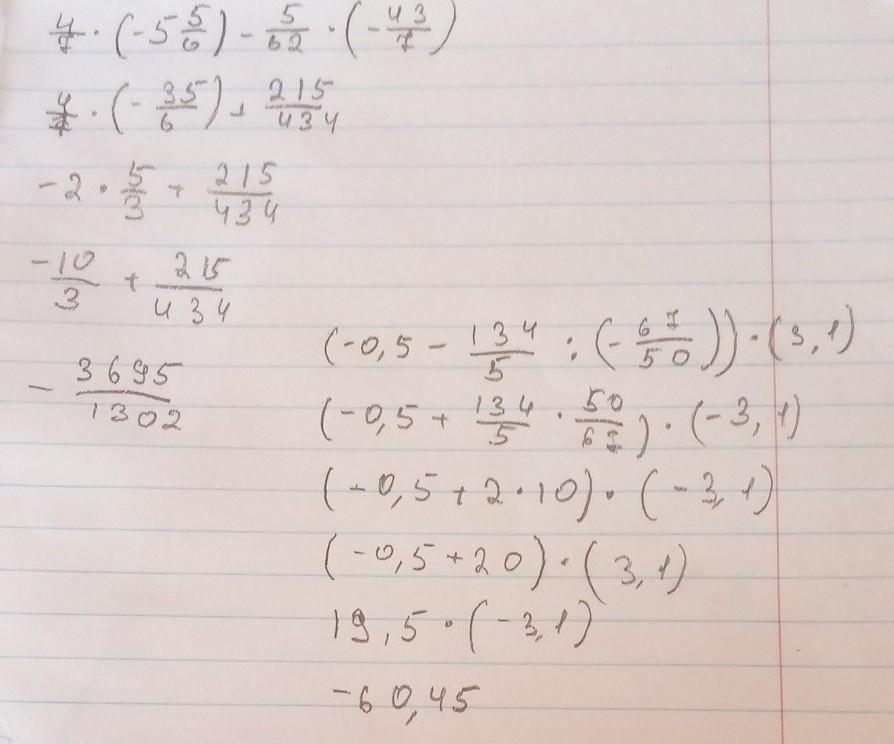 4/7 · (-5 5/6) - 5/62 · (-43/7)
4/7 · (-35/6) + 215/434
-2 · 5/3 + 215/434
-10/3 + 215/434
- 3695/1302
(-0,5 - 134/5 : (-67/50)) · (3,1)
(-0,5 + 134/5 · 50/67) · (-3,1)
(-0,5 + 2·10) · (-3,1)
(-0,5 + 20) · (3,1)
19,5 · (-3,1)
-60,45